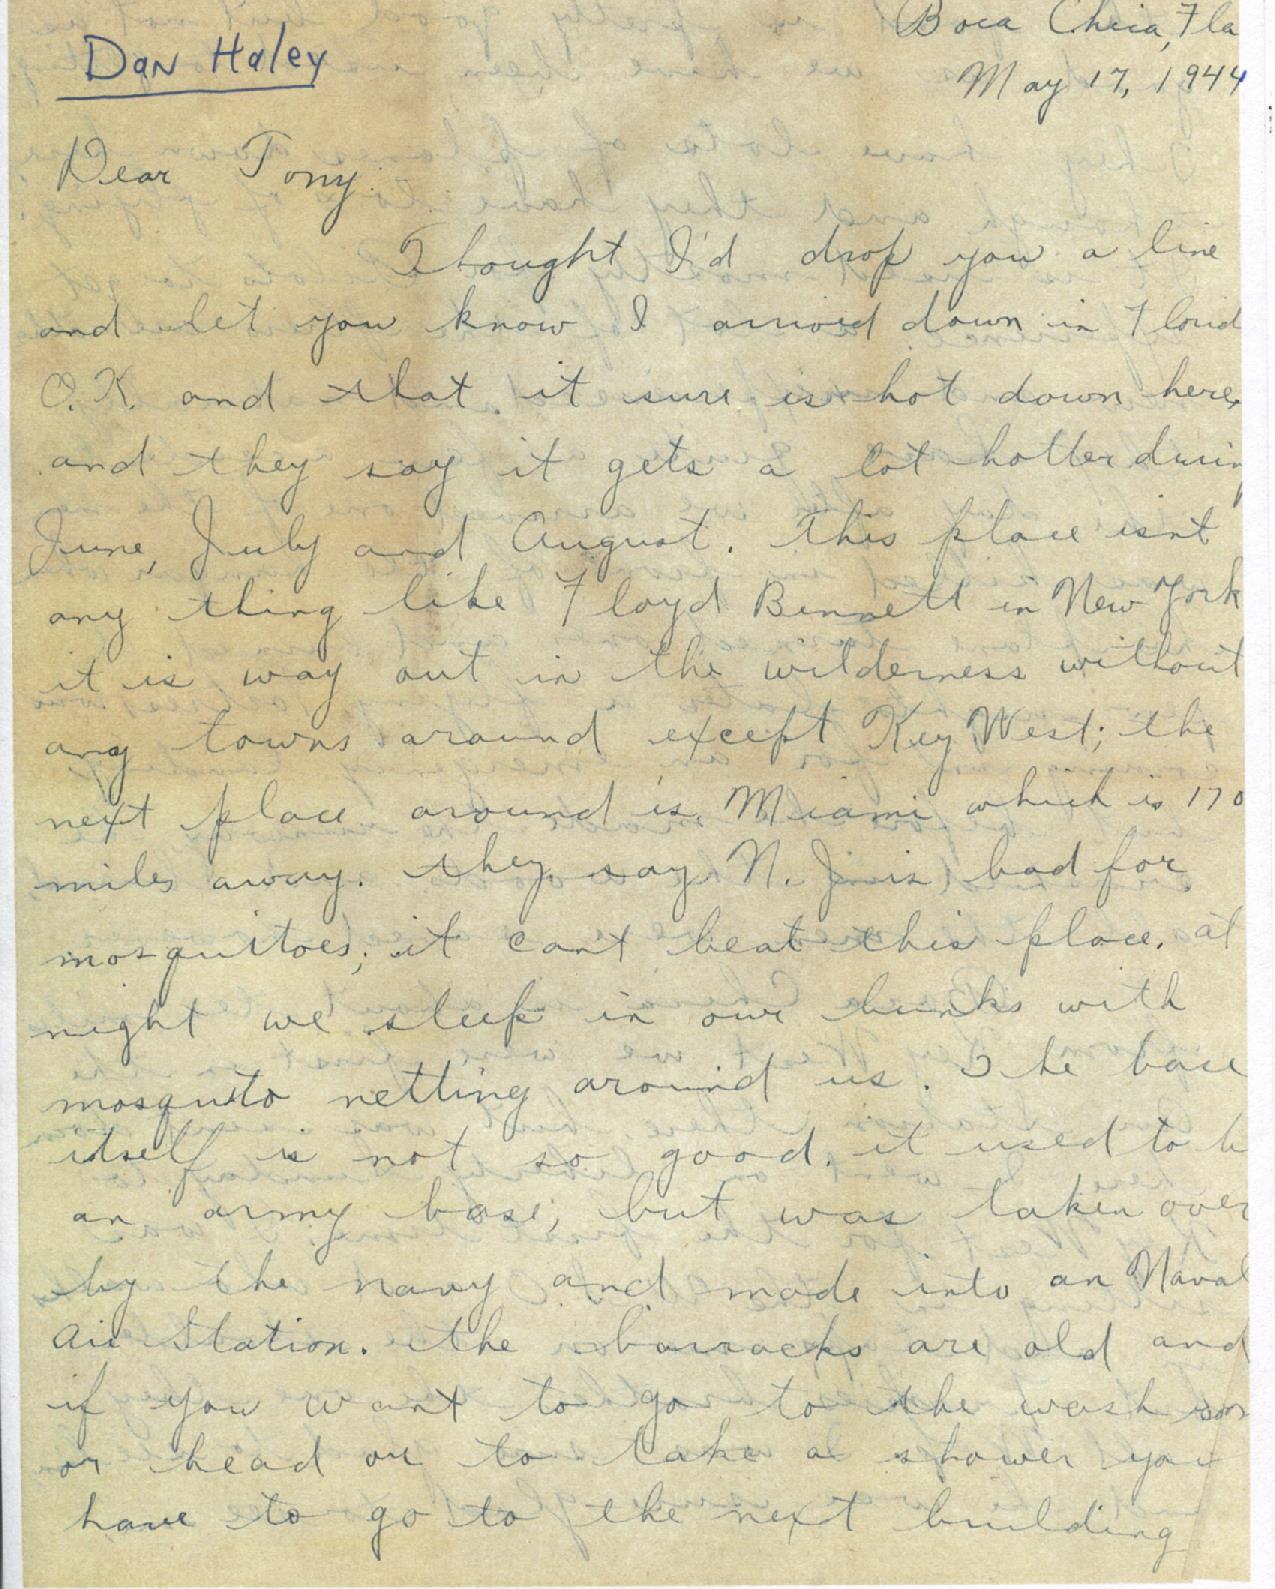 Boca Chica, Fla
Dan Haley
May 17, 1944
Dear Tony:
Thought I'd drop you a line
and let you know I arrived down in Florid
O.K. and that it sure is hot down here,
and they say it gets a lot hotter durin
June, July and August. This place isnt
any thing like Floyd Bennett in New York
it is way out in the wilderness without
any towns around except Key West; the
next place around is Miami which is 170
miles away. they say N. J. is bad for
mosquitoes; it cant beat this place. at
night we sleep in our bunks with
mosquito netting around us. The base
itself is not so good. it used to b
an army base, but was taken over
by the navy and made into an Naval
Air Station. the barracks are old and
if you want to go to the wash room
or head or to take a shower you
have to go to the next building